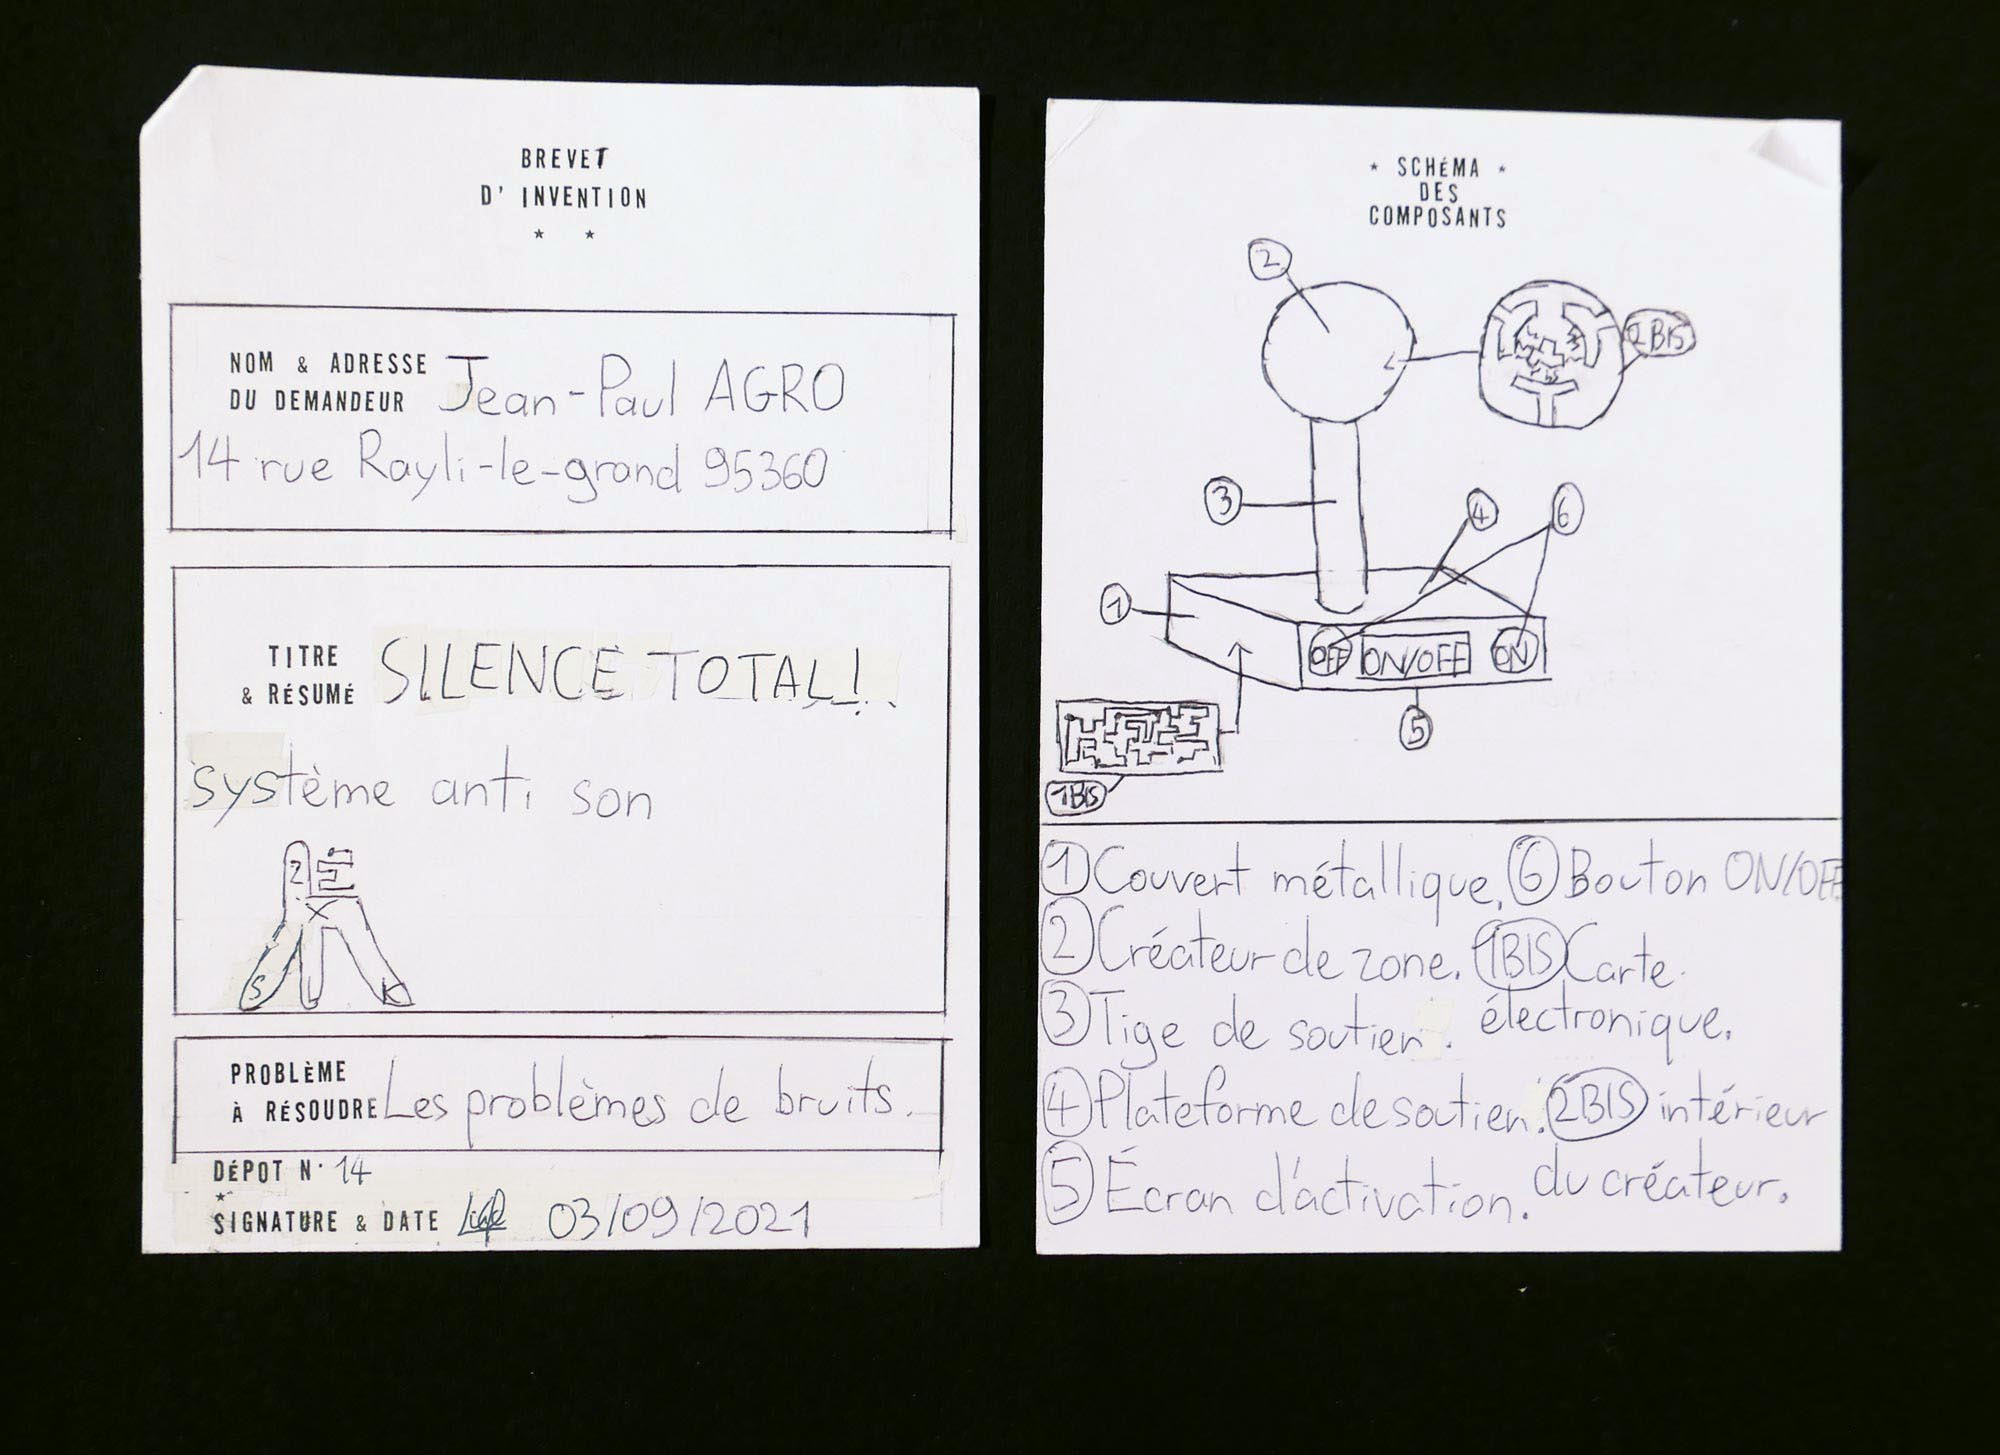 BREVET
D' INVENTION
* *
NOM & ADRESSE
DU DEMANDEUR Jean-Paul AGRO
14 rue Rayli-le-grand 95360
TITRE
& RÉSUMÉ SILENCE TOTAL!
système anti son
2
X
S L K
PROBLÈME
À RÉSOUDRE Les problèmes de bruits.
DÉPOT N· 14
*
SIGNATURE & DATE 03/09/2021
* SCHÉMA *
DES
COMPOSANTS
2
2BIS
3
4
6
1
OFF ON/OFF ON
5
1BIS
1 Couvert métallique. 6 Bouton ON/OFF.
2 Créateur de zone. 1BIS Carte
3 Tige de soutien. électronique.
4 Plateforme de soutien. 2BIS intérieur
5 Écran d'activation. du créateur.